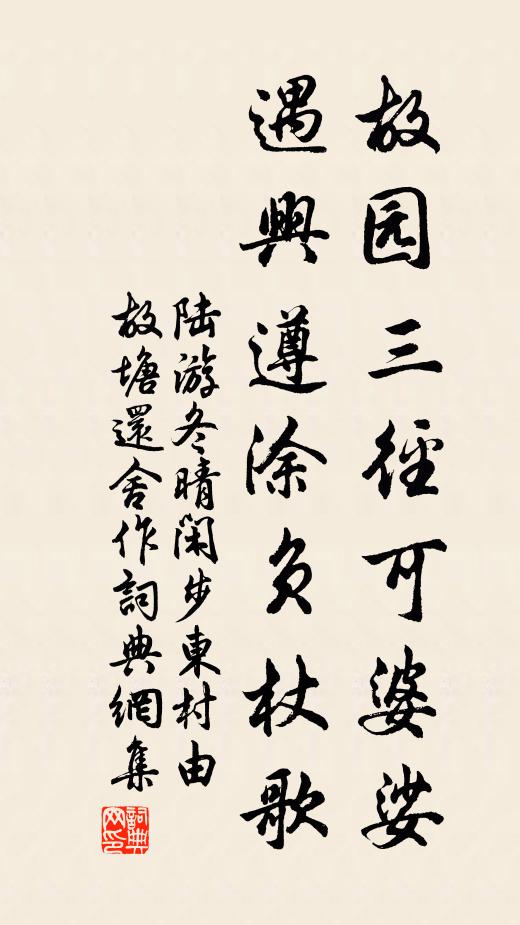 故园三徑可婆娑
遇興遵涂負杖歌
陆游冬晴閑步東村由
故塘還舍作詞典網集
詞典网印